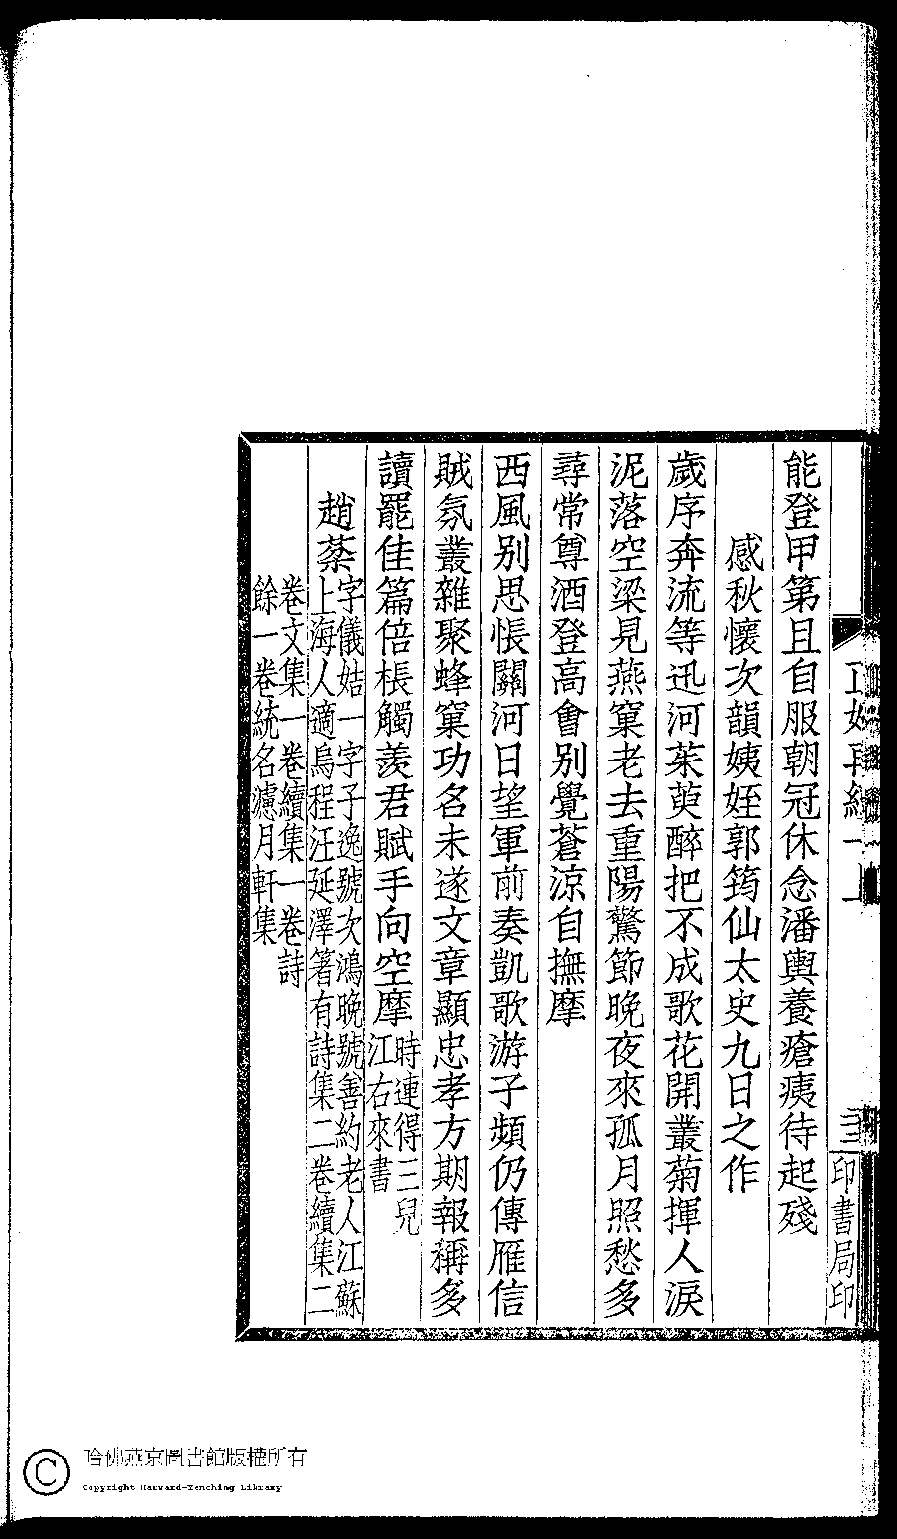 能登甲第且自服朝冠休念潘輿養瘡痍待起殘
感秋懷次韻姨姪郭筠仙太史九日之作
歲序奔流等迅河茱萸醉把不成歌花開叢菊揮人淚
泥落空梁見燕窠老去重陽驚節晚夜來孤月照愁多
尋常尊酒登高會別覺蒼涼自撫摩
西風別思悵關河日望軍前奏凱歌游子頻仍傳雁信
賊氛叢雜聚蜂窠功名未遂文章顯忠孝方期報稱多
讀罷佳篇倍棖觸羨君賦手向空摩
時連得三兒
江右來書
趙棻
字儀姞一字子逸號次鴻晚號善約老人江蘇
上海人適烏程汪延澤箸有詩集二卷續集二
卷文集一卷續集一卷詩
餘一卷統名濾月軒集
印書局印
哈佛燕京圖書館版權所有
Copyright Harvard-Yenching Library